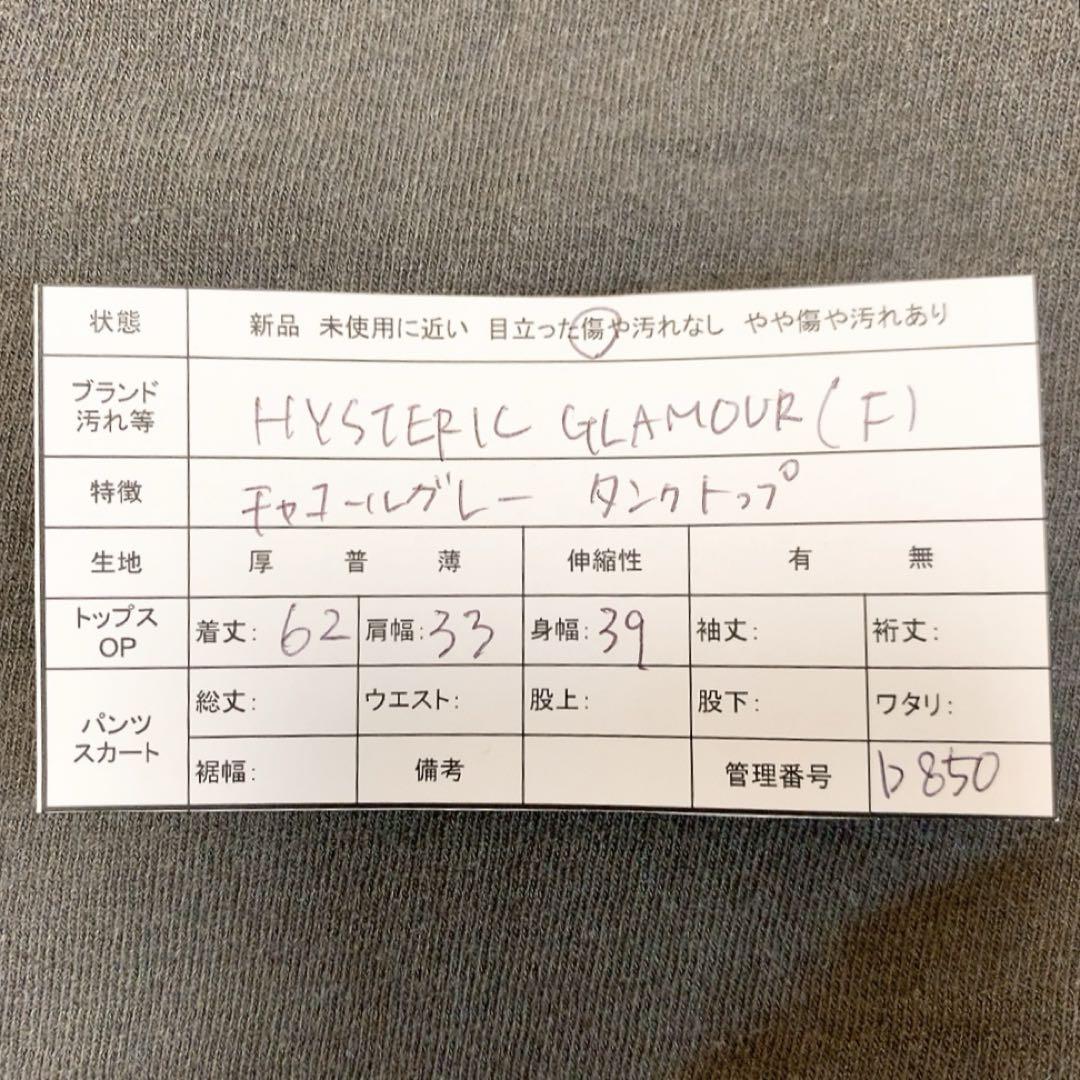 状態 新品 未使用に近い 目立った傷や汚れなし やや傷や汚れあり
ブランド
汚れ等 HYSTERIC GLAMOUR (F)
特徴 チャコールグレー タンクトップ
生地 厚 普 薄 伸縮性 有 無
トップス
OP 着丈: 62 肩幅: 33 身幅: 39 袖丈: 裄丈:
パンツ
スカート 総丈: ウエスト: 股上: 股下: ワタリ:
裾幅: 備考 管理番号 b850